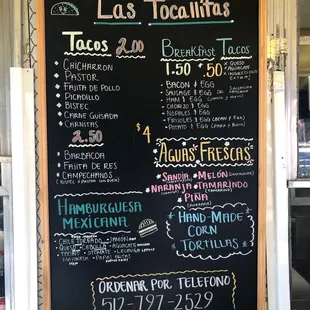 Las Tocallitas
Tacos 2.00
Chicharron
Pastor
Fajita de Pollo
Picadillo
Bistec
Carne Guisada
Carnitas
2.50
Barbacoa
Fajita de Res
Campechanos
Breakfast Tacos
1.50 + .50
Queso
Aguacate
Bacon & Egg
Sausage & Egg
Ham & Egg
Chorizo & Egg
Nopales & Egg
Frijoles & Egg
Potato & Egg
$4
Aguas Frescas
Sandía Melón
Naranja Tamarindo
Piña
Hamburguesa
Mexicana
Chile Toreado Jamón
Queso Cebolla Aguacate
Tocino Tomate Lechuga
Papas
Hand-Made
Corn
Tortillas
Ordenar por Telefono
512-797-2529